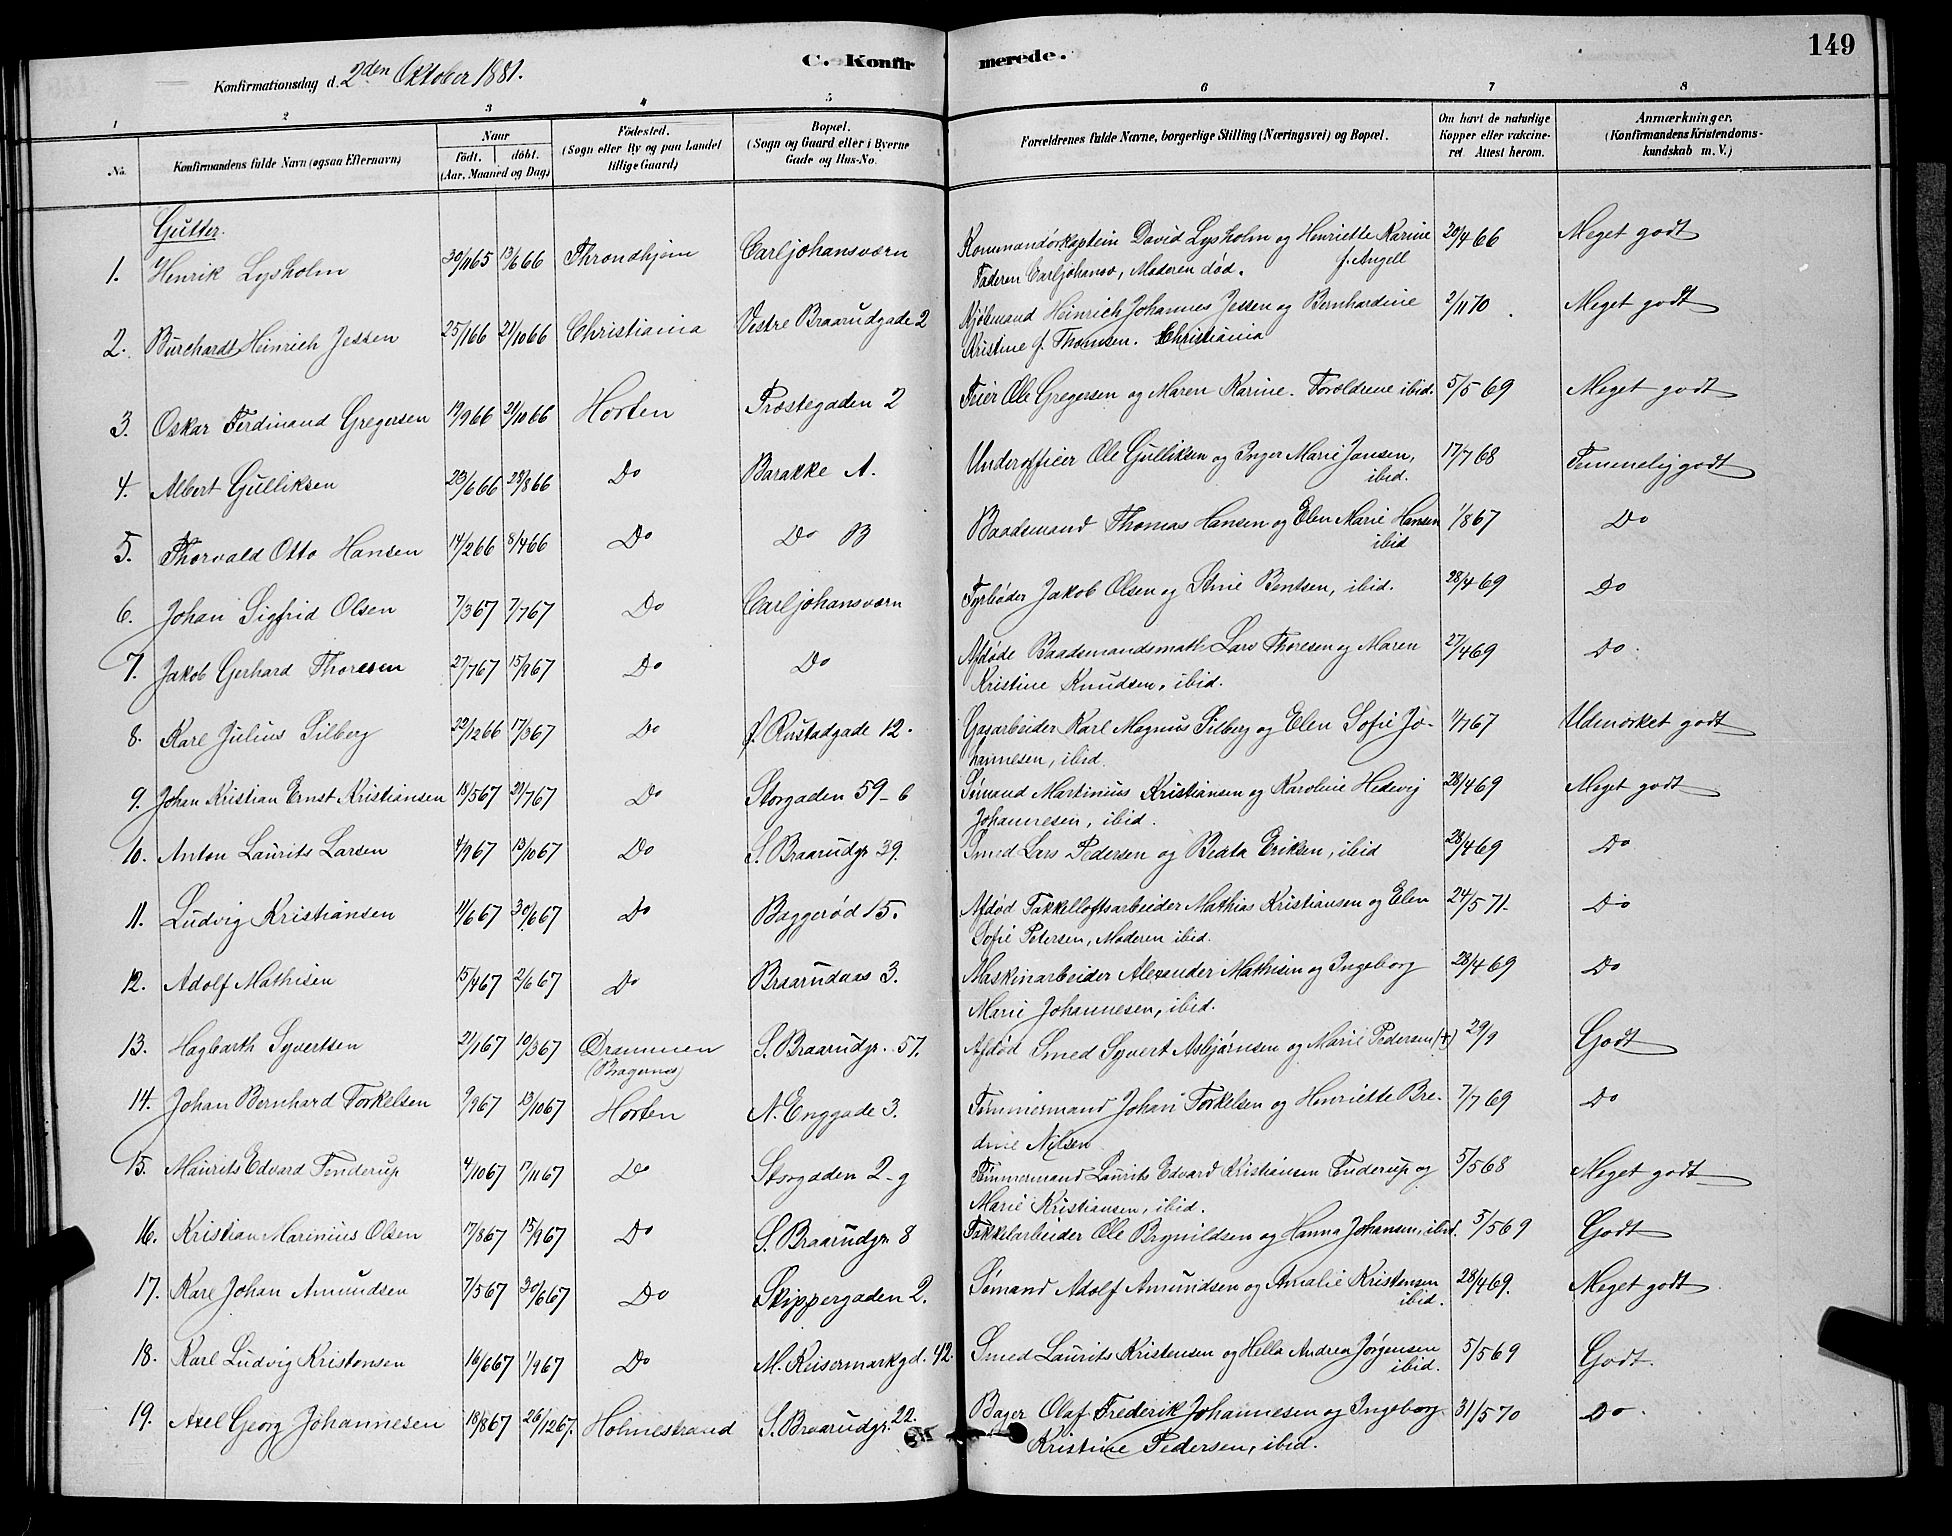 149
C. Konfirmerede.
Konfirmationsdag d. 2den Oktober 1881.
1 2 3 4 5 6 7 8
No. Konfirmandens fulde Navn (ogsaa Efternavn) Naar født. døbt. (Aar, Maaned og Dag) Fødested. (Sogn eller By og paa Landet tillige Gaard) Bopæl. (Sogn og Gaard eller i Byerne Gade og Hus-No. Forældrenes fulde Navne, borgerlige Stilling (Næringsvei) og Bopæl. Om havt de naturlige Kopper eller vakcineret. Attest herom. Anmærkninger. (Konfirmandens Kristendomskundskab m. V.)
Gutter.
1. Henrik Lysholm 30/1165 13/666 Throndhjem Carljohansværn Kommandørkaptein David Lysholm og Henriette Karine f. Angell 20/466 Meget godt
Faderen Carljohansv, Moderen død.
2. Burchardt Heinrich Jessen 25/166 21/1066 Christiania Vestre Braarudgade 2 Kjøbmand Heinrich Johannes Jessen og Bernhardine 2/1170 Meget godt
Kristine f. Thomsen. Christiania
3. Oskar Ferdinand Gregersen 19/966 21/1066 Horten Præstegaden 2 Feier Ole Gregersen og Maren Karine. Forældrene ibid. 5/569 Meget godt
4. Albert Gulliksen 23/666 28/866 Do Barakke A. Underofficer Ole Gulliksen og Inger Marie Jansen, ibid. 17/768 Temmelig godt
5. Thorvald Otto Hansen 14/266 8/466 Do Do B Baadsmand Thomas Hansen og Elen Marie Hansen ibid 1/867 Do
6. Johan Sigfrid Olsen 7/367 7/767 Do Carljohansværn Fyrbøder Jakob Olsen og Stine Bentsen, ibid. 28/469 Do
7. Jakob Gerhard Thoresen 27/767 15/967 Do Do Afdøde Baadsmandsmath Lars Thoresen og Maren 27/469 Do
Kristine Knudsen, ibid.
8. Karl Julius Silberg 22/1266 17/367 Do J. Rustadgade 12. Gasarbeider Karl Magnus Silberg og Elen Sofie Jo- 11/767 Udmærket godt
hannesen, ibid.
9. Johan Kristian Ernst Kristiansen 18/567 21/767 Do Storgaden 59-6 Sømand Martinius Kristiansen og Karoline Hedevig 28/469 Meget godt
Johannesen, ibid.
10. Anton Laurits Larsen 4/967 13/1067 Do S. Braarudgr. 39. Smed Lars Pedersen og Beata Eriksen, ibid 28/469 Do
11. Ludvig Kristiansen 11/667 30/667 Do Baggerød 15. Afdød Takkelloftsarbeider Mathias Kristiansen og Elen 24/571 Do
Sofie Petersen, Moderen ibid.
12. Adolf Mathisen 15/467 2/667 Do Braarudaas 3. Maskinarbeider Alexander Mathisen og Ingeborg 28/469 Do
Marie Johannesen, ibid.
13. Hagbarth Syvertsen 21/167 10/367 Drammen (Bragernes) S. Braarudgr. 57. Afdød Smed Syvert Asbjørnsen og Marie Pedersen (+) 29/9 Godt
14. Johan Bernhard Torkelsen 9/967 13/1067 Horten N. Enggade 3. Tømmermand Johan Torkelsen og Henriette Bre- 7/769 Do
dine Nilsen
15. Maurits Edvard Tenderup 4/1067 17/1167 Do Storgaden 2-g Tømmermand Laurits Edvard Kristiansen Tenderup og 5/568 Meget godt
Marie Kristiansen, ibid.
16. Kristian Marinius Olsen 17/867 15/967 Do S. Braarudgr. 8 Takkelarbeider Ole Brynildsen og Hanna Johansen, ibid. 5/569 Godt
17. Karl Johan Amundsen 7/567 30/667 Do Skippergaden 2. Sømand Adolf Amundsen og Amalie Kristensen ibid. 28/469. Meget godt
18. Karl Ludvig Kristensen 16/667 1/967 Do M. Keisermarkgd. 42. Smed Laurits Kristensen og Hella Andrea Jørgensen ibid. 5/569 Godt.
19. Axel Georg Johannesen 18/867 26/1267. Holmestrand S. Braarudgr. 22. Bager Olaf Frederik Johannesen og Ingeborg 31/570 Do
Kristine Pedersen, ibid.